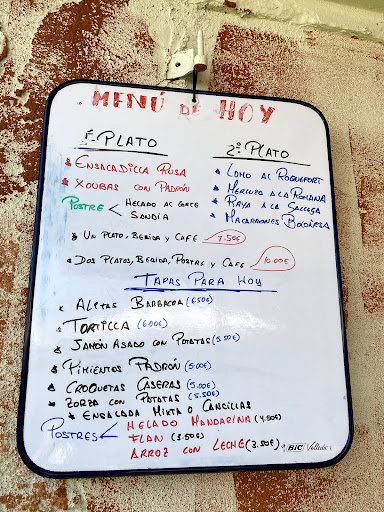 MENÚ DE HOY
1º PLATO
2º PLATO
* ENSALADILLA RUSA
* XOUBAS CON PADRÓN
POSTRE < HELADO AL CORTE
SANDIA
* LOMO AL ROQUEFORT
* MERLUZA A LA ROMANA
* RAYA A LA GALLEGA
* MACARRONES BOLOÑESA
* UN PLATO, BEBIDA Y CAFE 7.50€
* DOS PLATOS, BEBIDA, POSTRE Y CAFE 10.00€
TAPAS PARA HOY
* ALITAS BARBACOA (6.50€)
* TORTILLA (6.00€)
* JAMÓN ASADO CON PATATAS (5.50€)
* PIMIENTOS PADRÓN (5.00€)
* CROQUETAS CASERAS (5.00€)
* ZORZA CON PATATAS (5.50€)
* ENSALADA MIXTA O CANCILLAS
POSTRES < HELADO MANDARINA (4.50€)
FLAN (3.50€)
ARROZ CON LECHE (3.50€)
BIC Velleda